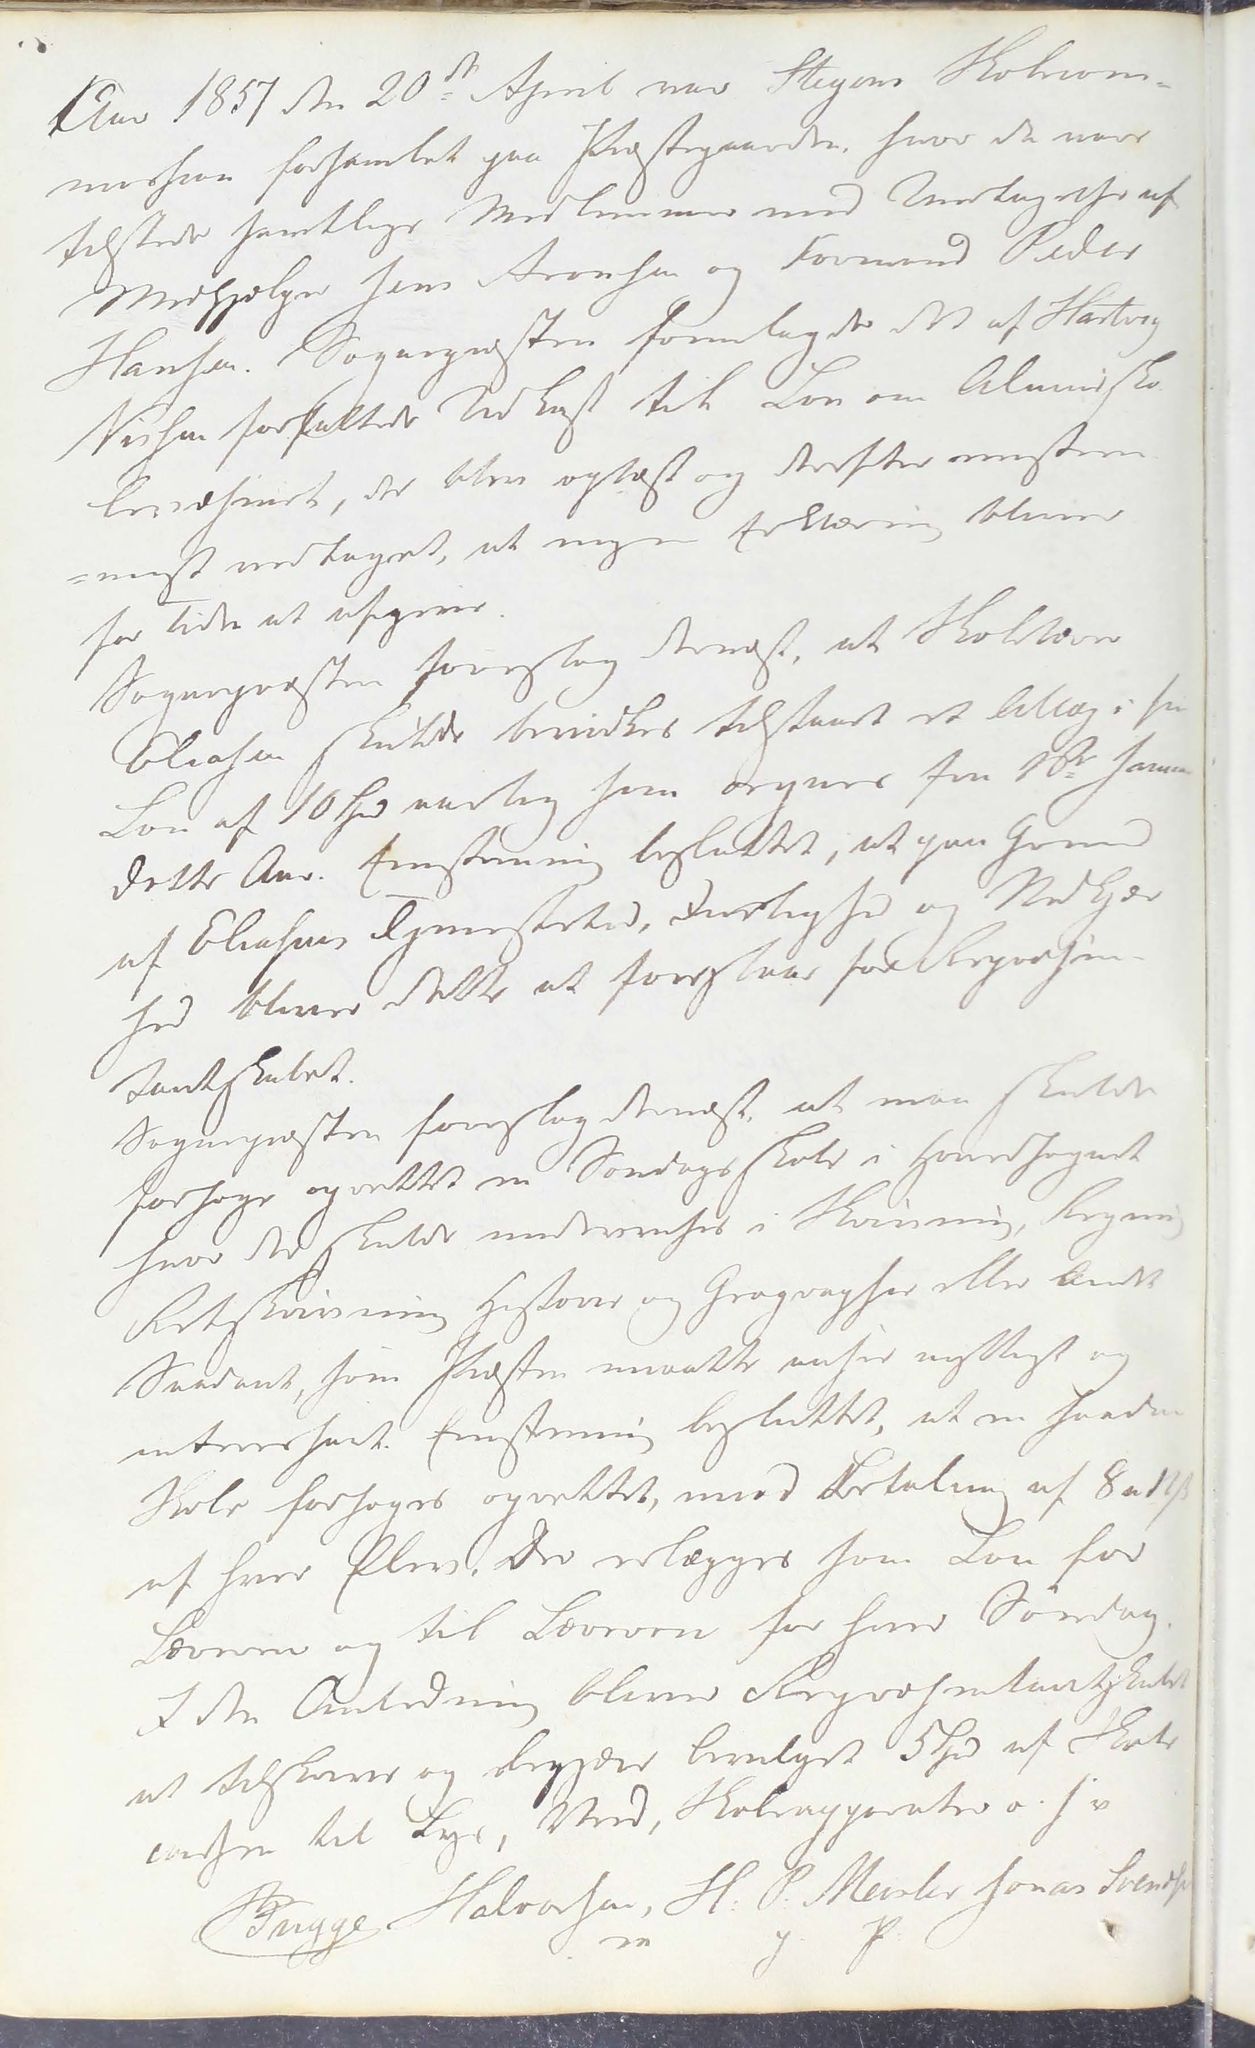 Aar 1857 den 20de April var Stegens Skolecom=
mission forsamlet paa Præstegaarden, hvor da vare
tilstede samtlige Medlemmer med Undtagelse af
Medhjælper Jens Aronsen og Formand Peder
Hansen. Sognepræsten foremlagde det af Hartvig
Nissen forfattede Udkast til Lov om Almuesko
levæsenet, der blev oplæst og derefter enstem
=migt vedtaget, at ingen Erklæring bliver
for Tiden at afgive.
Sognepræsten foreslog dernæst, at Skolelærer
Eliasen skulde bevirkes tilstaaet et Tillæg i sin
Løn af 10 Spd aarlig som regnes fra 1ste Januar
dette Aar. Eenstemmig besluttet, at paa Grund
af Eliasens Tjenestetid, Duelighed og Nidkjær
hed bliver dette at foreslaae for Repræsen-
tantskabet.
Sognepræsten foreslog dernæst, at man skulde
forsøge oprettet en Søndagsskole i Hovedsognet
hvor der skulde undervises i Skrivning, Regning
Retskrivning Historie og Geographie eller Andet
Saadant, som Præsten maatte ansee nyttigt og
interessant. Eenstemmig besluttet, at en saadan
Skole forsøges oprettet, mod Betaling af 8 a 12 ß
af hver Elev, der erlægges som Løn for
Læreren og til Læreren for hver Søndag.
I den Anledning bliver Repræsentantskabet
at tilskrive og begjære bevilget 5 Spd af Skole
cassen til Lys, Ved, Skoleapparater o. s. v
Brygge Halvorsen, H. P. Meisler Jonas Svendsen
m p.